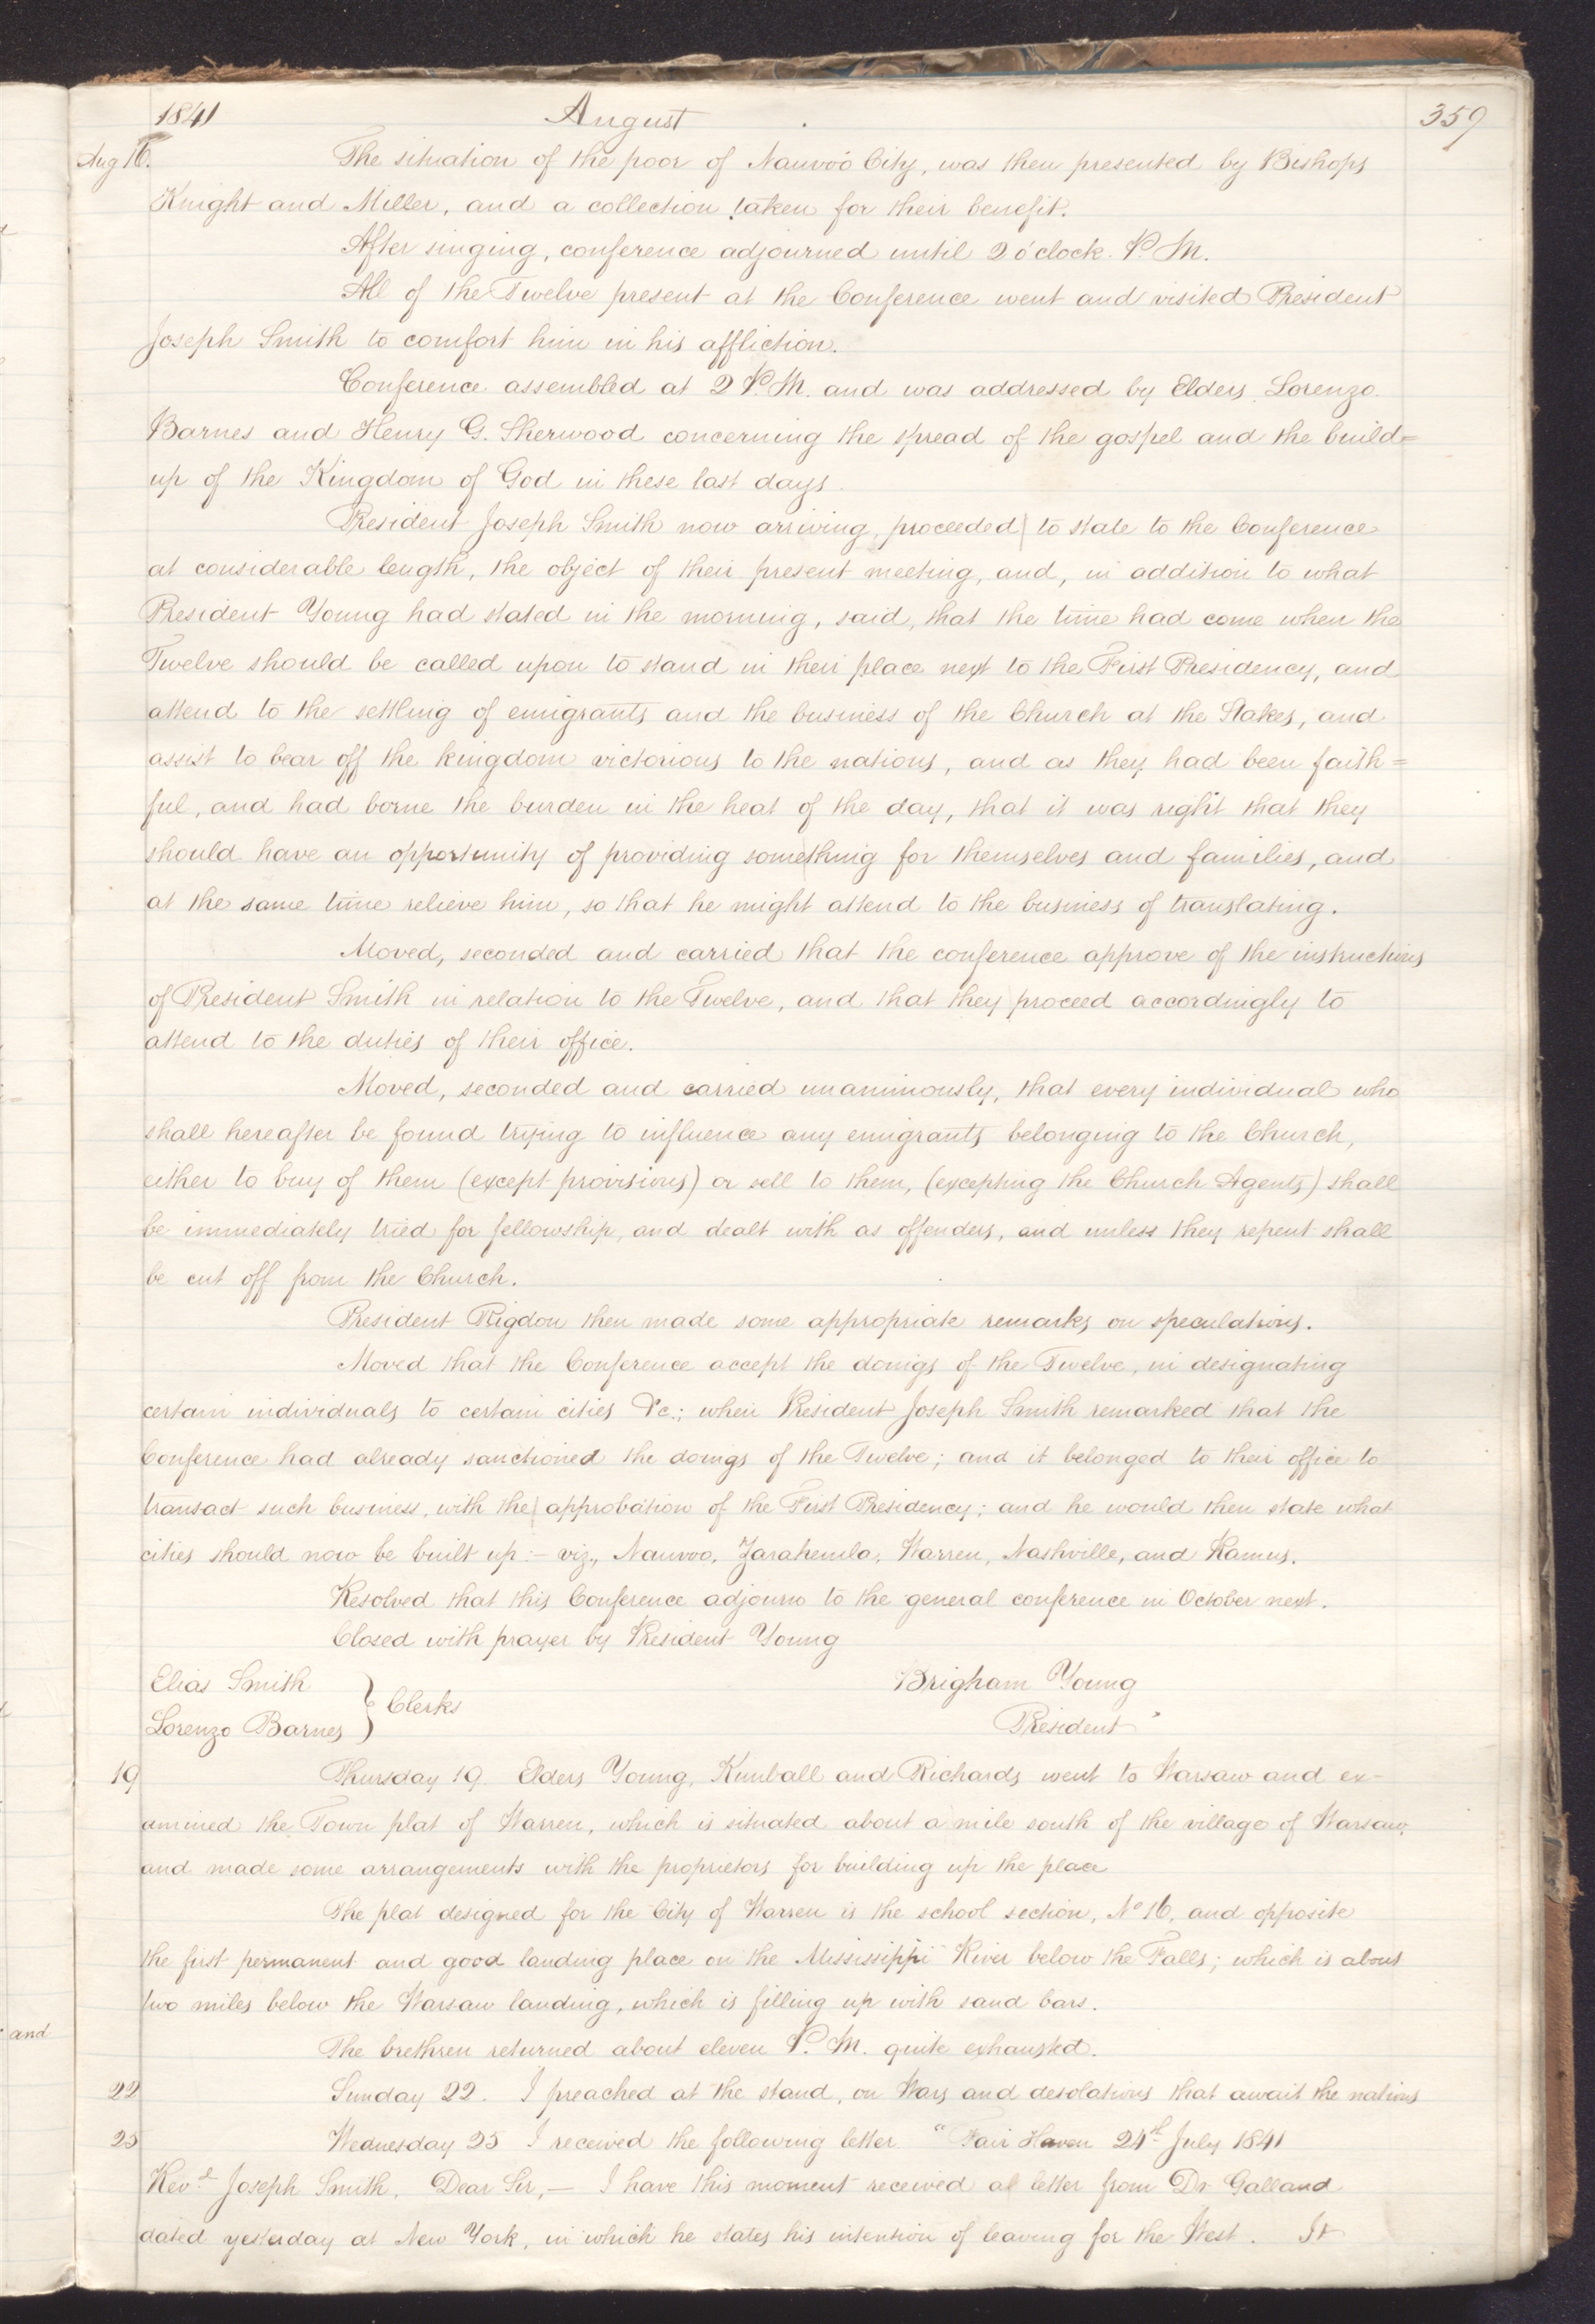 1841 August 359
Aug 16. The situation of the poor of Nauvoo City, was then presented by Bishops
Knight and Miller, and a collection taken for their benefit.
After singing, conference adjourned until 2 o'clock. P. M.
All of the Twelve present at the Conference went and visited President
Joseph Smith to comfort him in his affliction.
Conference assembled at 2 P. M. and was addressed by Elders Lorenzo
Barnes and Henry G. Sherwood concerning the spread of the gospel and the build=
up of the Kingdom of God in these last days.
President Joseph Smith now arriving, proceeded to state to the Conference
at considerable length, the object of their present meeting, and, in addition to what
President Young had stated in the morning, said, that the time had come when the
Twelve should be called upon to stand in their place next to the First Presidency, and
attend to the settling of emigrants and the business of the Church at the Stakes, and
assist to bear off the kingdom victorious to the nations, and as they had been faith=
ful, and had borne the burden in the heat of the day, that it was right that they
should have an opportunity of providing something for themselves and families, and
at the same time relieve him, so that he might attend to the business of translating.
Moved, seconded and carried that the conference approve of the instructions
of President Smith in relation to the Twelve, and that they proceed accordingly to
attend to the duties of their office.
Moved, seconded and carried unanimously, that every individual who
shall hereafter be found trying to influence any emigrants belonging to the Church,
either to buy of them (except provisions) or sell to them, (excepting the Church Agents) shall
be immediately tried for fellowship, and dealt with as offenders, and unless they repent shall
be cut off from the Church.
President Rigdon then made some appropriate remarks on speculations.
Moved that the Conference accept the doings of the Twelve, in designating
certain individuals to certain cities &c.; when President Joseph Smith remarked that the
Conference had already sanctioned the doings of the Twelve; and it belonged to their office to
transact such business, with the approbation of the First Presidency; and he would then state what
cities should now be built up:— viz., Nauvoo, Zarahemla, Warren, Nashville, and Ramus.
Resolved that this Conference adjourn to the general conference in October next.
Closed with prayer by President Young
Elias Smith } Clerks Brigham Young
Lorenzo Barnes } President"
19 Thursday 19 Elders Young, Kimball and Richards went to Warsaw and ex-
amined the Town plat of Warren, which is situated about a mile south of the village of Warsaw,
and made some arrangements with the proprietors for building up the place
The plat designed for the City of Warren is the school section, No 16, and opposite
the first permanent and good landing place on the Mississippi River below the Falls; which is about
two miles below the Warsaw landing, which is filling up with sand bars.
The brethren returned about eleven P. M. quite exhausted.
and
22 Sunday 22. I preached at the stand, on Wars and desolations that await the nations
25 Wednesday 25 I received the following letter "Fair Haven 24th July 1841
Revd Joseph Smith. Dear Sir,— I have this moment received a letter from Dr Galland
dated yesterday at New York, in which he states his intention of leaving for the West. It